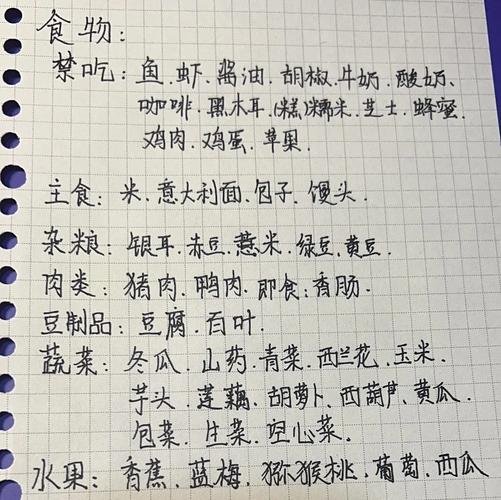 食物：
禁吃：鱼.虾.酱油.胡椒.牛奶.酸奶、
咖啡.黑木耳.(糕)糯米.芝士.蜂蜜.
鸡肉.鸡蛋.苹果.
主食：米.意大利面.包子.馒头.
杂粮：银耳.赤豆.薏米.绿豆.黄豆.
肉类：猪肉.鸭肉.即食:香肠.
豆制品：豆腐.百叶.
蔬菜：冬瓜.山药.青菜.西兰花.玉米.
芋头.莲藕.胡萝卜.西葫芦.黄瓜.
包菜.生菜.空心菜.
水果：香蕉.蓝莓.猕猴桃.葡萄.西瓜